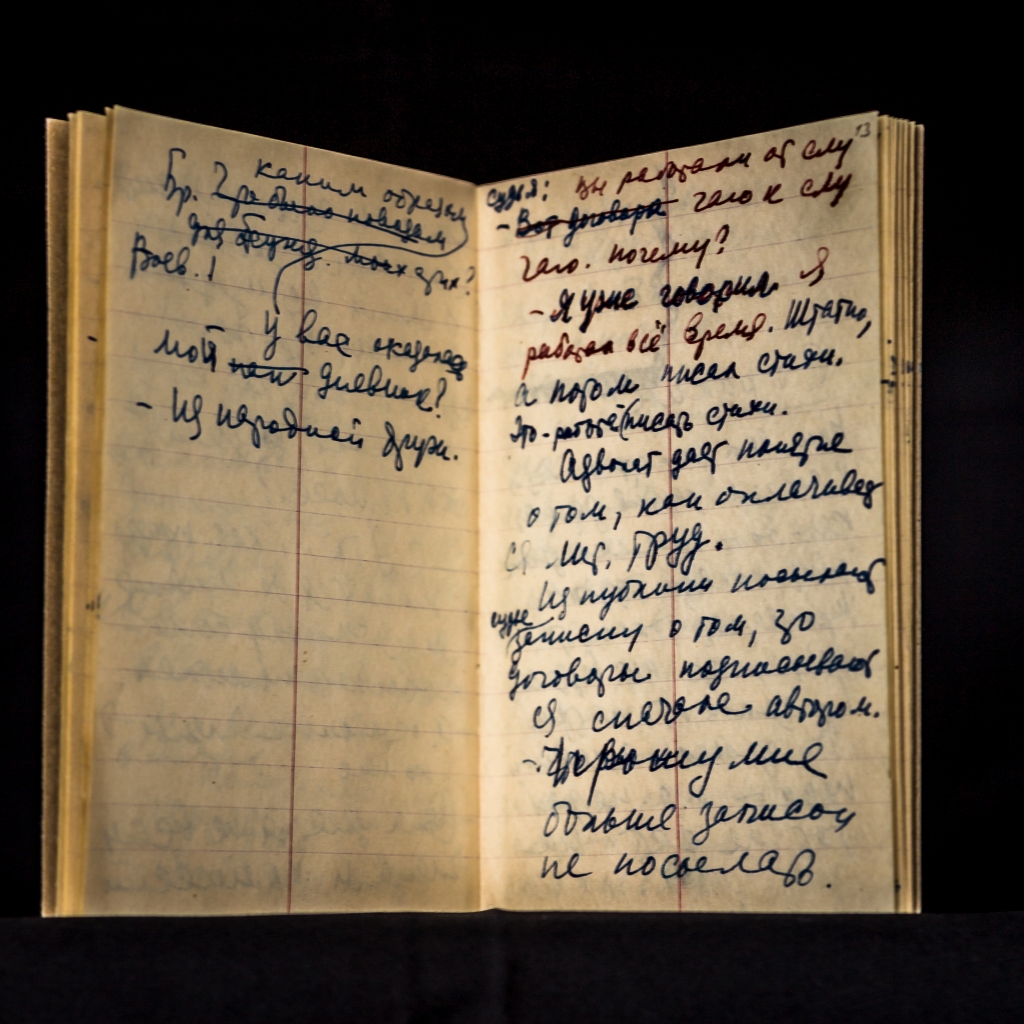 каким образом
Бр.
для обсужд. моих друж?
Воев.!
у вас оказался
мой дневник?
- Из народной друж.
13
Судья: Вы работали от слу
- Вот договора чаю к слу
чаю. почему?
- Я уже говорил. Я
работал всё время. Штатно,
а потом писал стихи.
Это - работа (писать стихи.
Адвокат дает понятие
о том, как оплачивает
ся лит. труд.
Из публики посылают
судье
записку о том, что
договоры подписывают
ся сначала автором.
- Прошу мне
больше записок
не посылать.